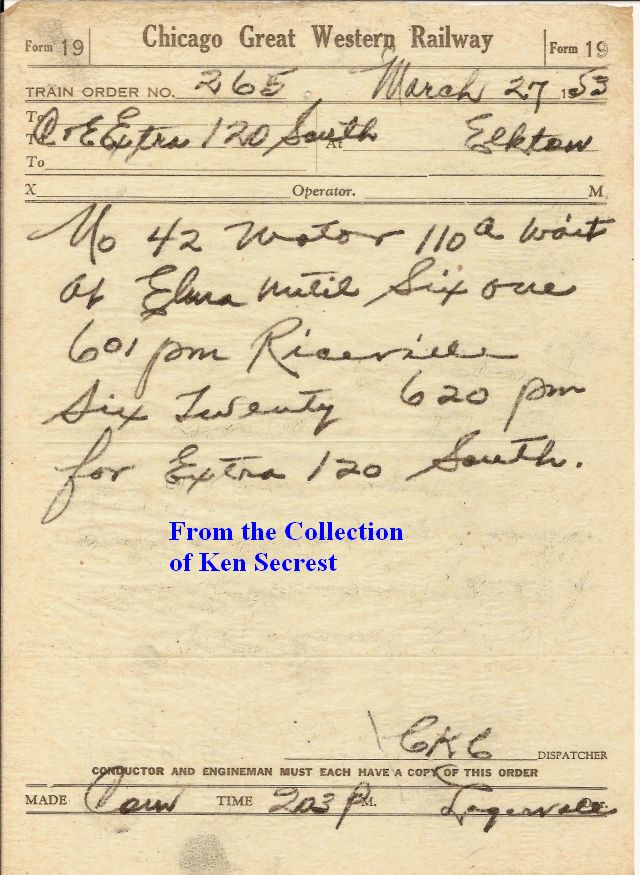 Form 19 Chicago Great Western Railway Form 19
TRAIN ORDER NO. 265 March 27 1953
To
To C&E Extra 120 South At Elkton
To
X Operator. M
No 42 motor 110a wait
at Elma until Six one
601 pm Riceville
Six Twenty 620 pm
for Extra 120 South.
From the Collection
of Ken Secrest
CKC DISPATCHER
CONDUCTOR AND ENGINEMAN MUST EACH HAVE A COPY OF THIS ORDER
MADE Com TIME 203 P M.